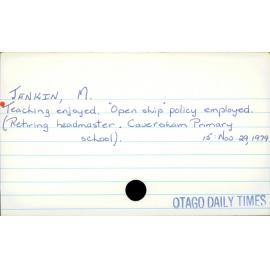 JENKIN, M.
Teaching enjoyed. "Open ship" policy employed.
(Retiring headmaster. Caversham Primary
school). 15: Nov. 29, 1979
OTAGO DAILY TIMES